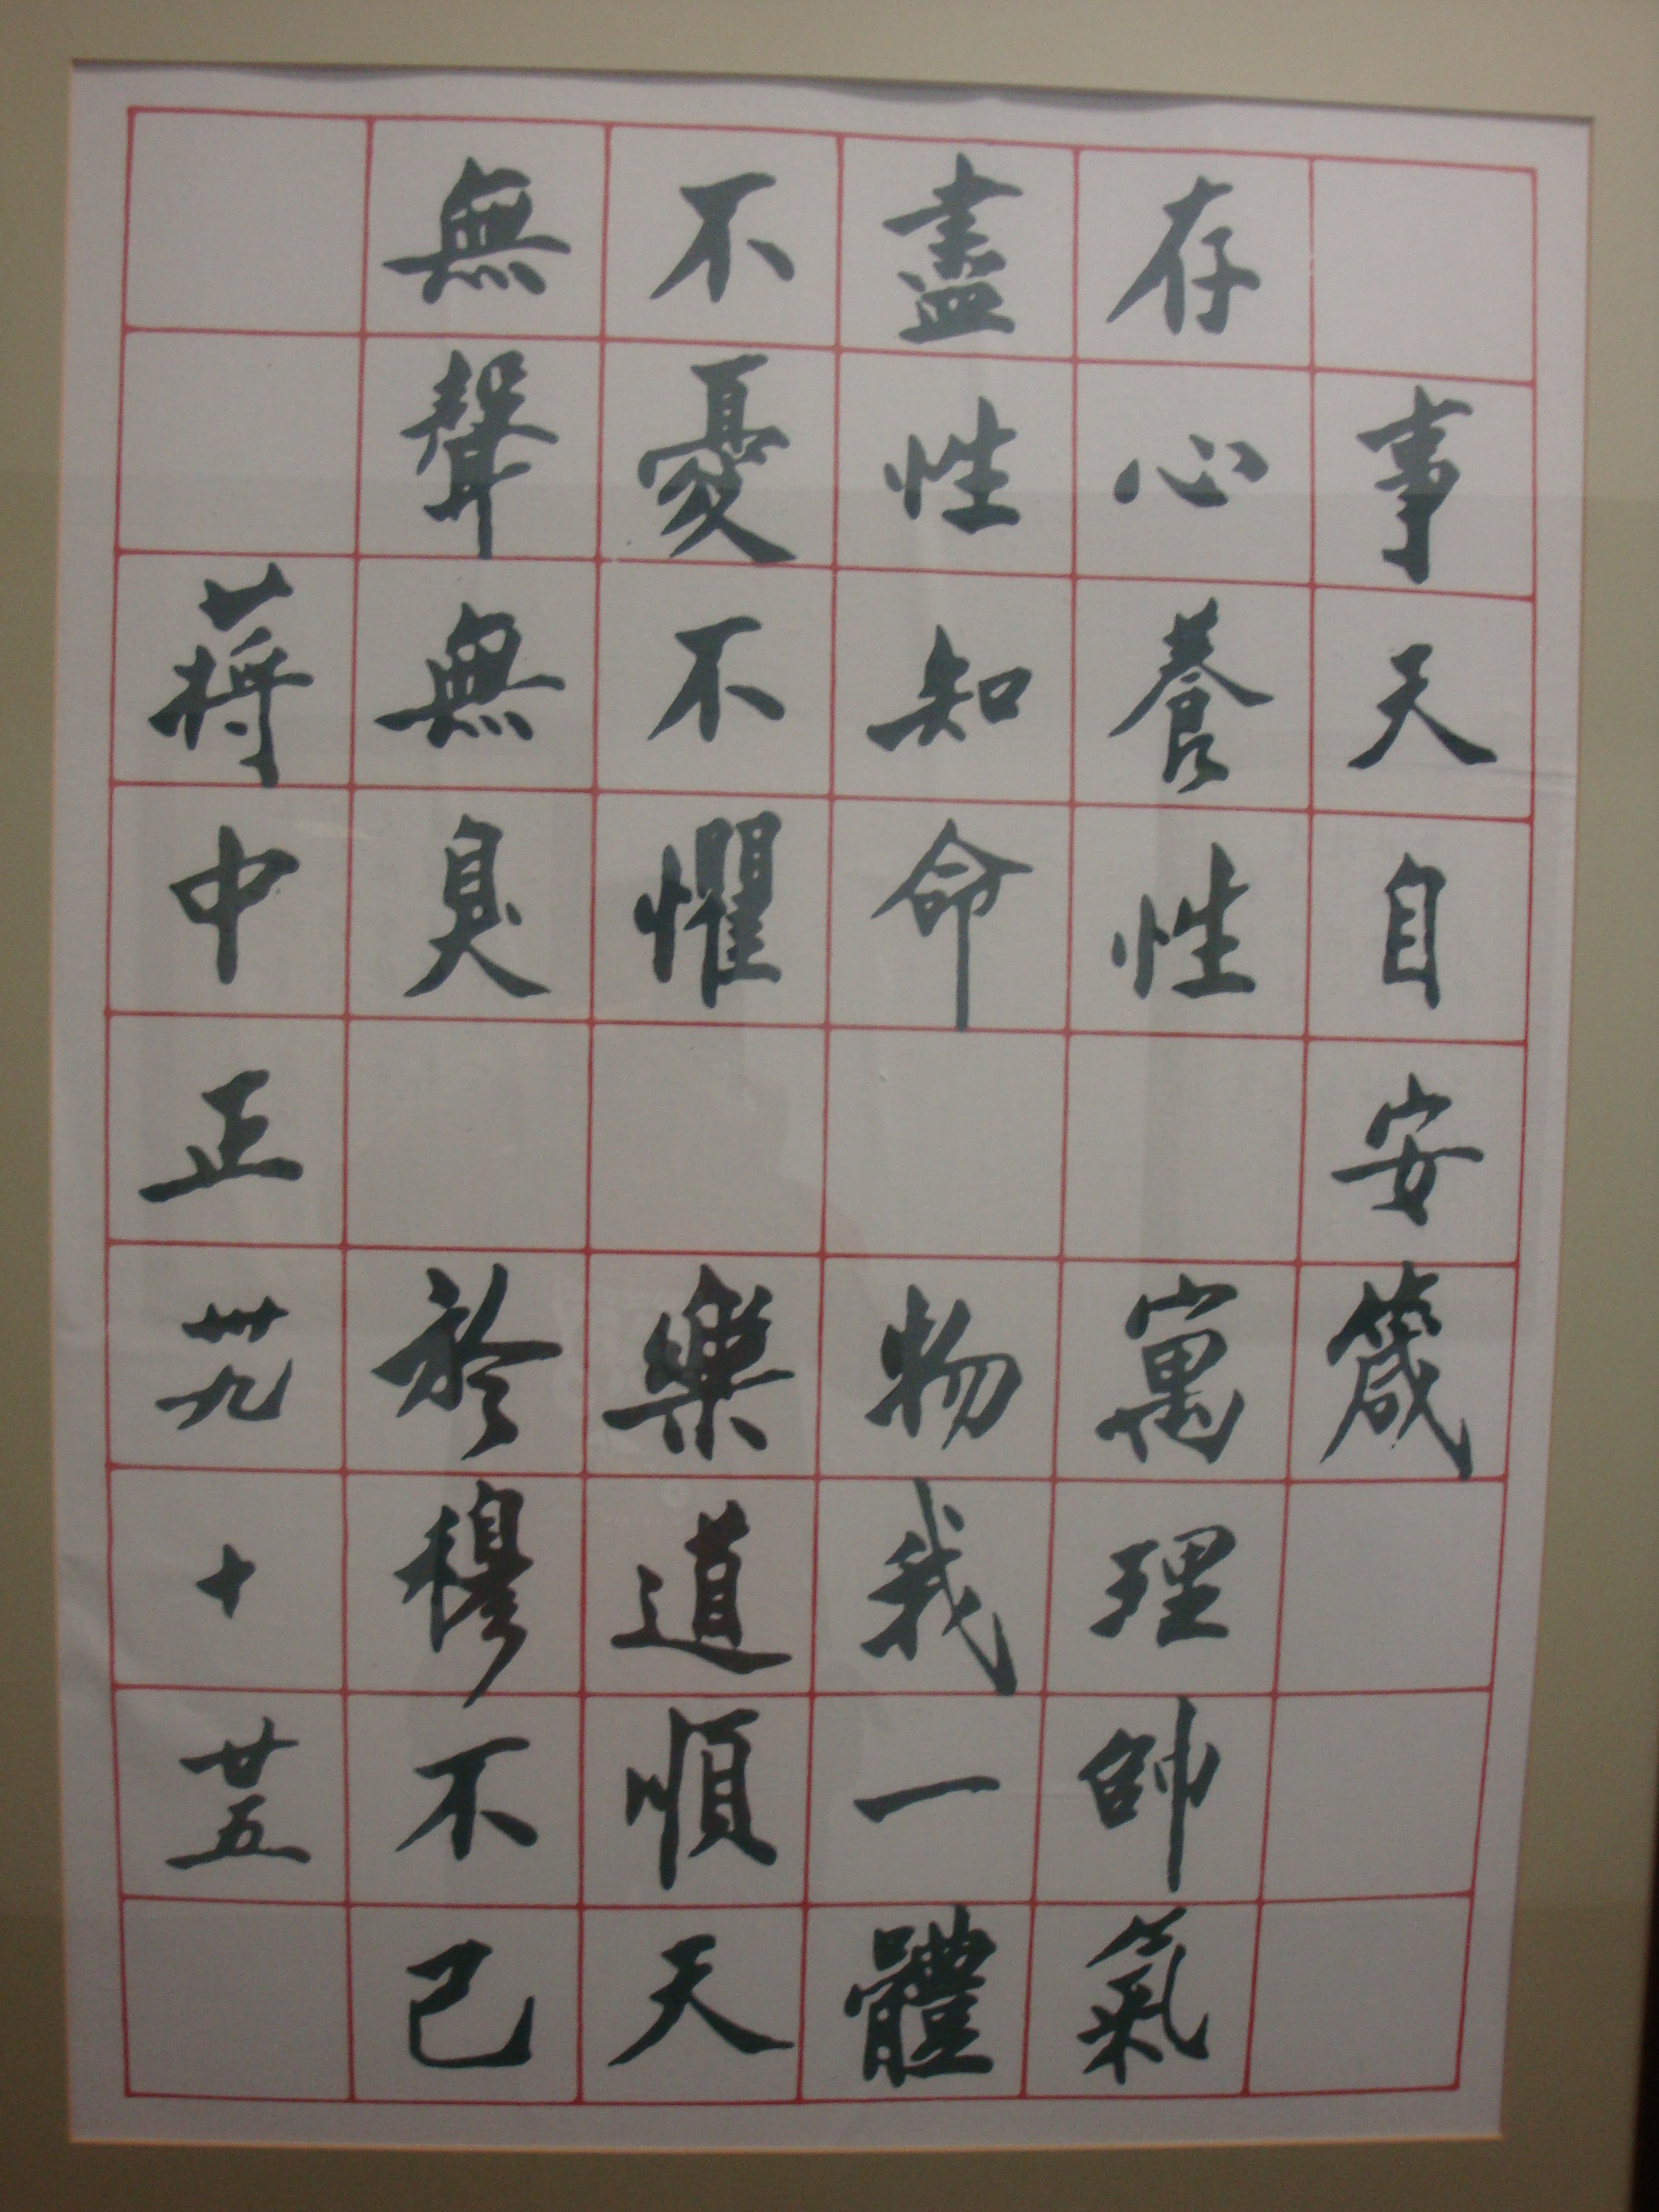 事天自安箴
存心養性 寓理帥氣
盡性知命 物我一體
不憂不懼 樂道順天
無聲無臭 於穆不已
蔣中正 卅九 十 廿五